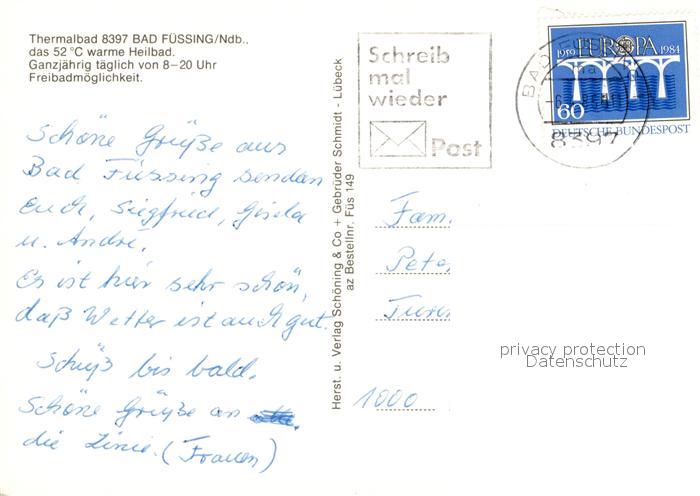 Thermalbad 8397 BAD FÜSSING/Ndb.,
das 52 °C warme Heilbad.
Ganzjährig täglich von 8–20 Uhr
Freibadmöglichkeit.
Schöne Grüße aus
Bad Füssing senden
Euch, Siegfried, Gisela
u. André.
Es ist hier sehr schön,
daß Wetter ist auch gut.
Schüß bis bald.
Schöne Grüße an
die Linie. (Frauen)
Herst. u. Verlag Schöning & Co + Gebrüder Schmidt - Lübeck
az Bestellnr. Füs 149
Schreib
mal
wieder
Post
BAD
8397
EUROPA
1959 1984
60
DEUTSCHE BUNDESPOST
Fam.
Pete
1000
privacy protection
Datenschutz